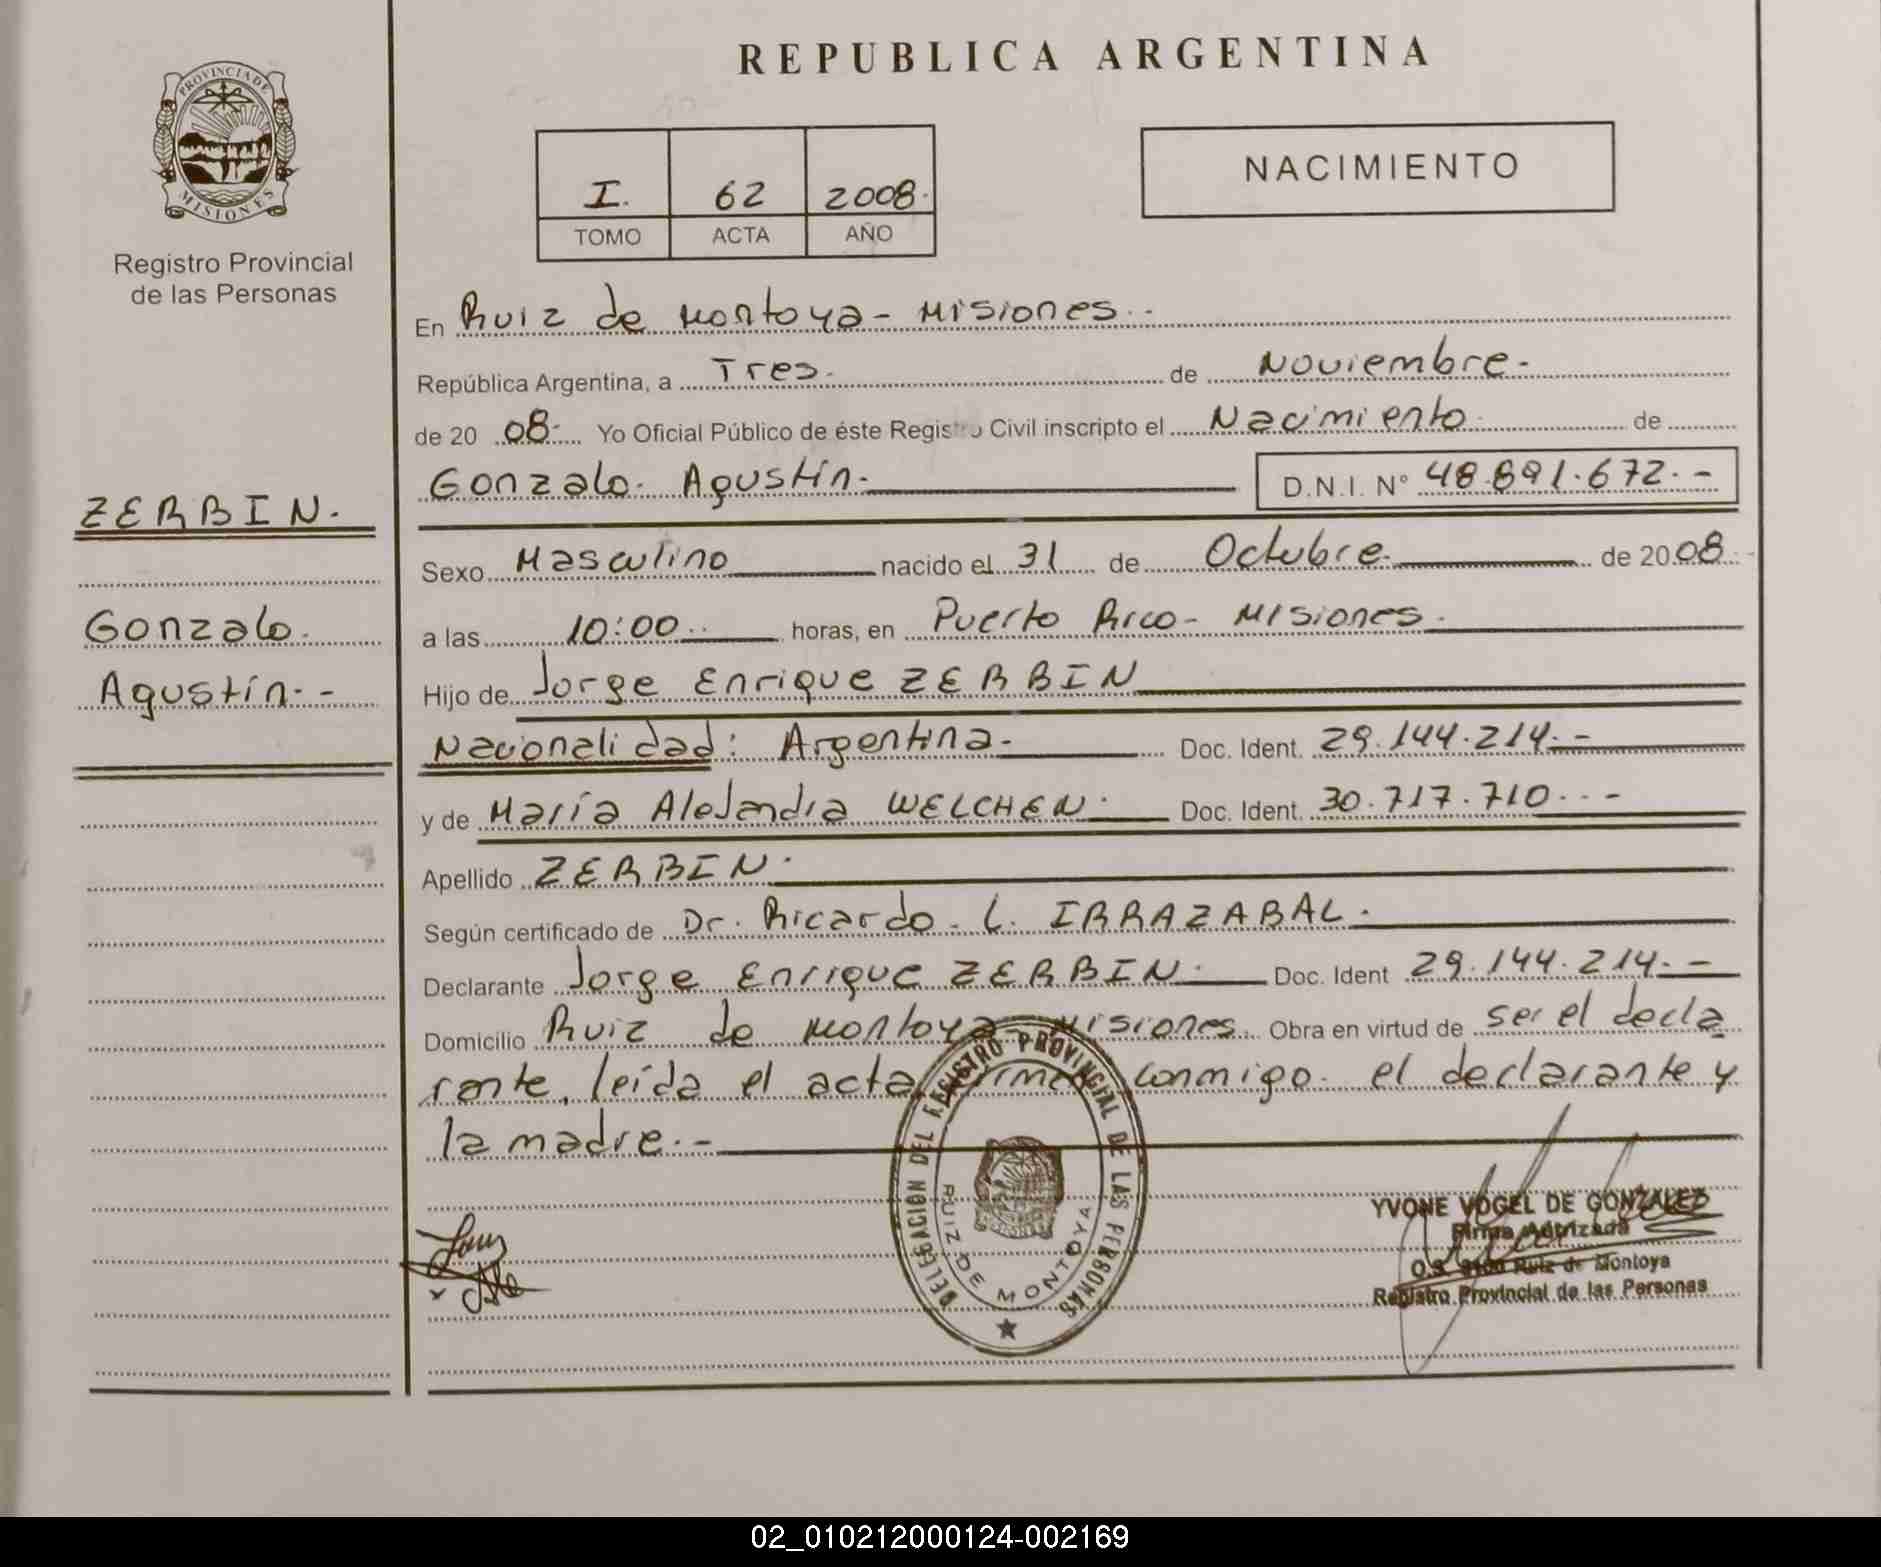 REPUBLICA ARGENTINA
PROVINCIA DE
MISIONES
Registro Provincial
de las Personas
I. 62 2008.
TOMO ACTA AÑO
NACIMIENTO
En Ruiz de Montoya - Misiones.-
República Argentina, a Tres. de Noviembre.-
de 20 08.- Yo Oficial Público de éste Registro Civil inscripto el Nacimiento. de
Gonzalo. Agustín.- D.N.I. N° 48.891.672.-
ZERBIN.
Gonzalo.
Agustín.-
Sexo Masculino nacido el 31 de Octubre. de 20 08.-
a las 10:00.. horas, en Puerto Rico - Misiones.
Hijo de Jorge Enrique ZERBIN
Nacionalidad: Argentina.- Doc. Ident. 29.144.214.-
y de María Alejandra WELCHEN. Doc. Ident. 30.717.710..-
Apellido ZERBIN.
Según certificado de Dr. Ricardo. L. IRRAZABAL.
Declarante Jorge Enrique ZERBIN. Doc. Ident 29.144.214.-
Domicilio Ruiz de Montoya Misiones. Obra en virtud de ser el decla
rante, leída el acta firman conmigo. el declarante y
la madre.-
DELEGACION DEL REGISTRO PROVINCIAL DE LAS PERSONAS
RUIZ DE MONTOYA
YVONE VOGEL DE GONZALEZ
Firma Autorizada
Ruiz de Montoya
Registro Provincial de las Personas
02_010212000124-002169